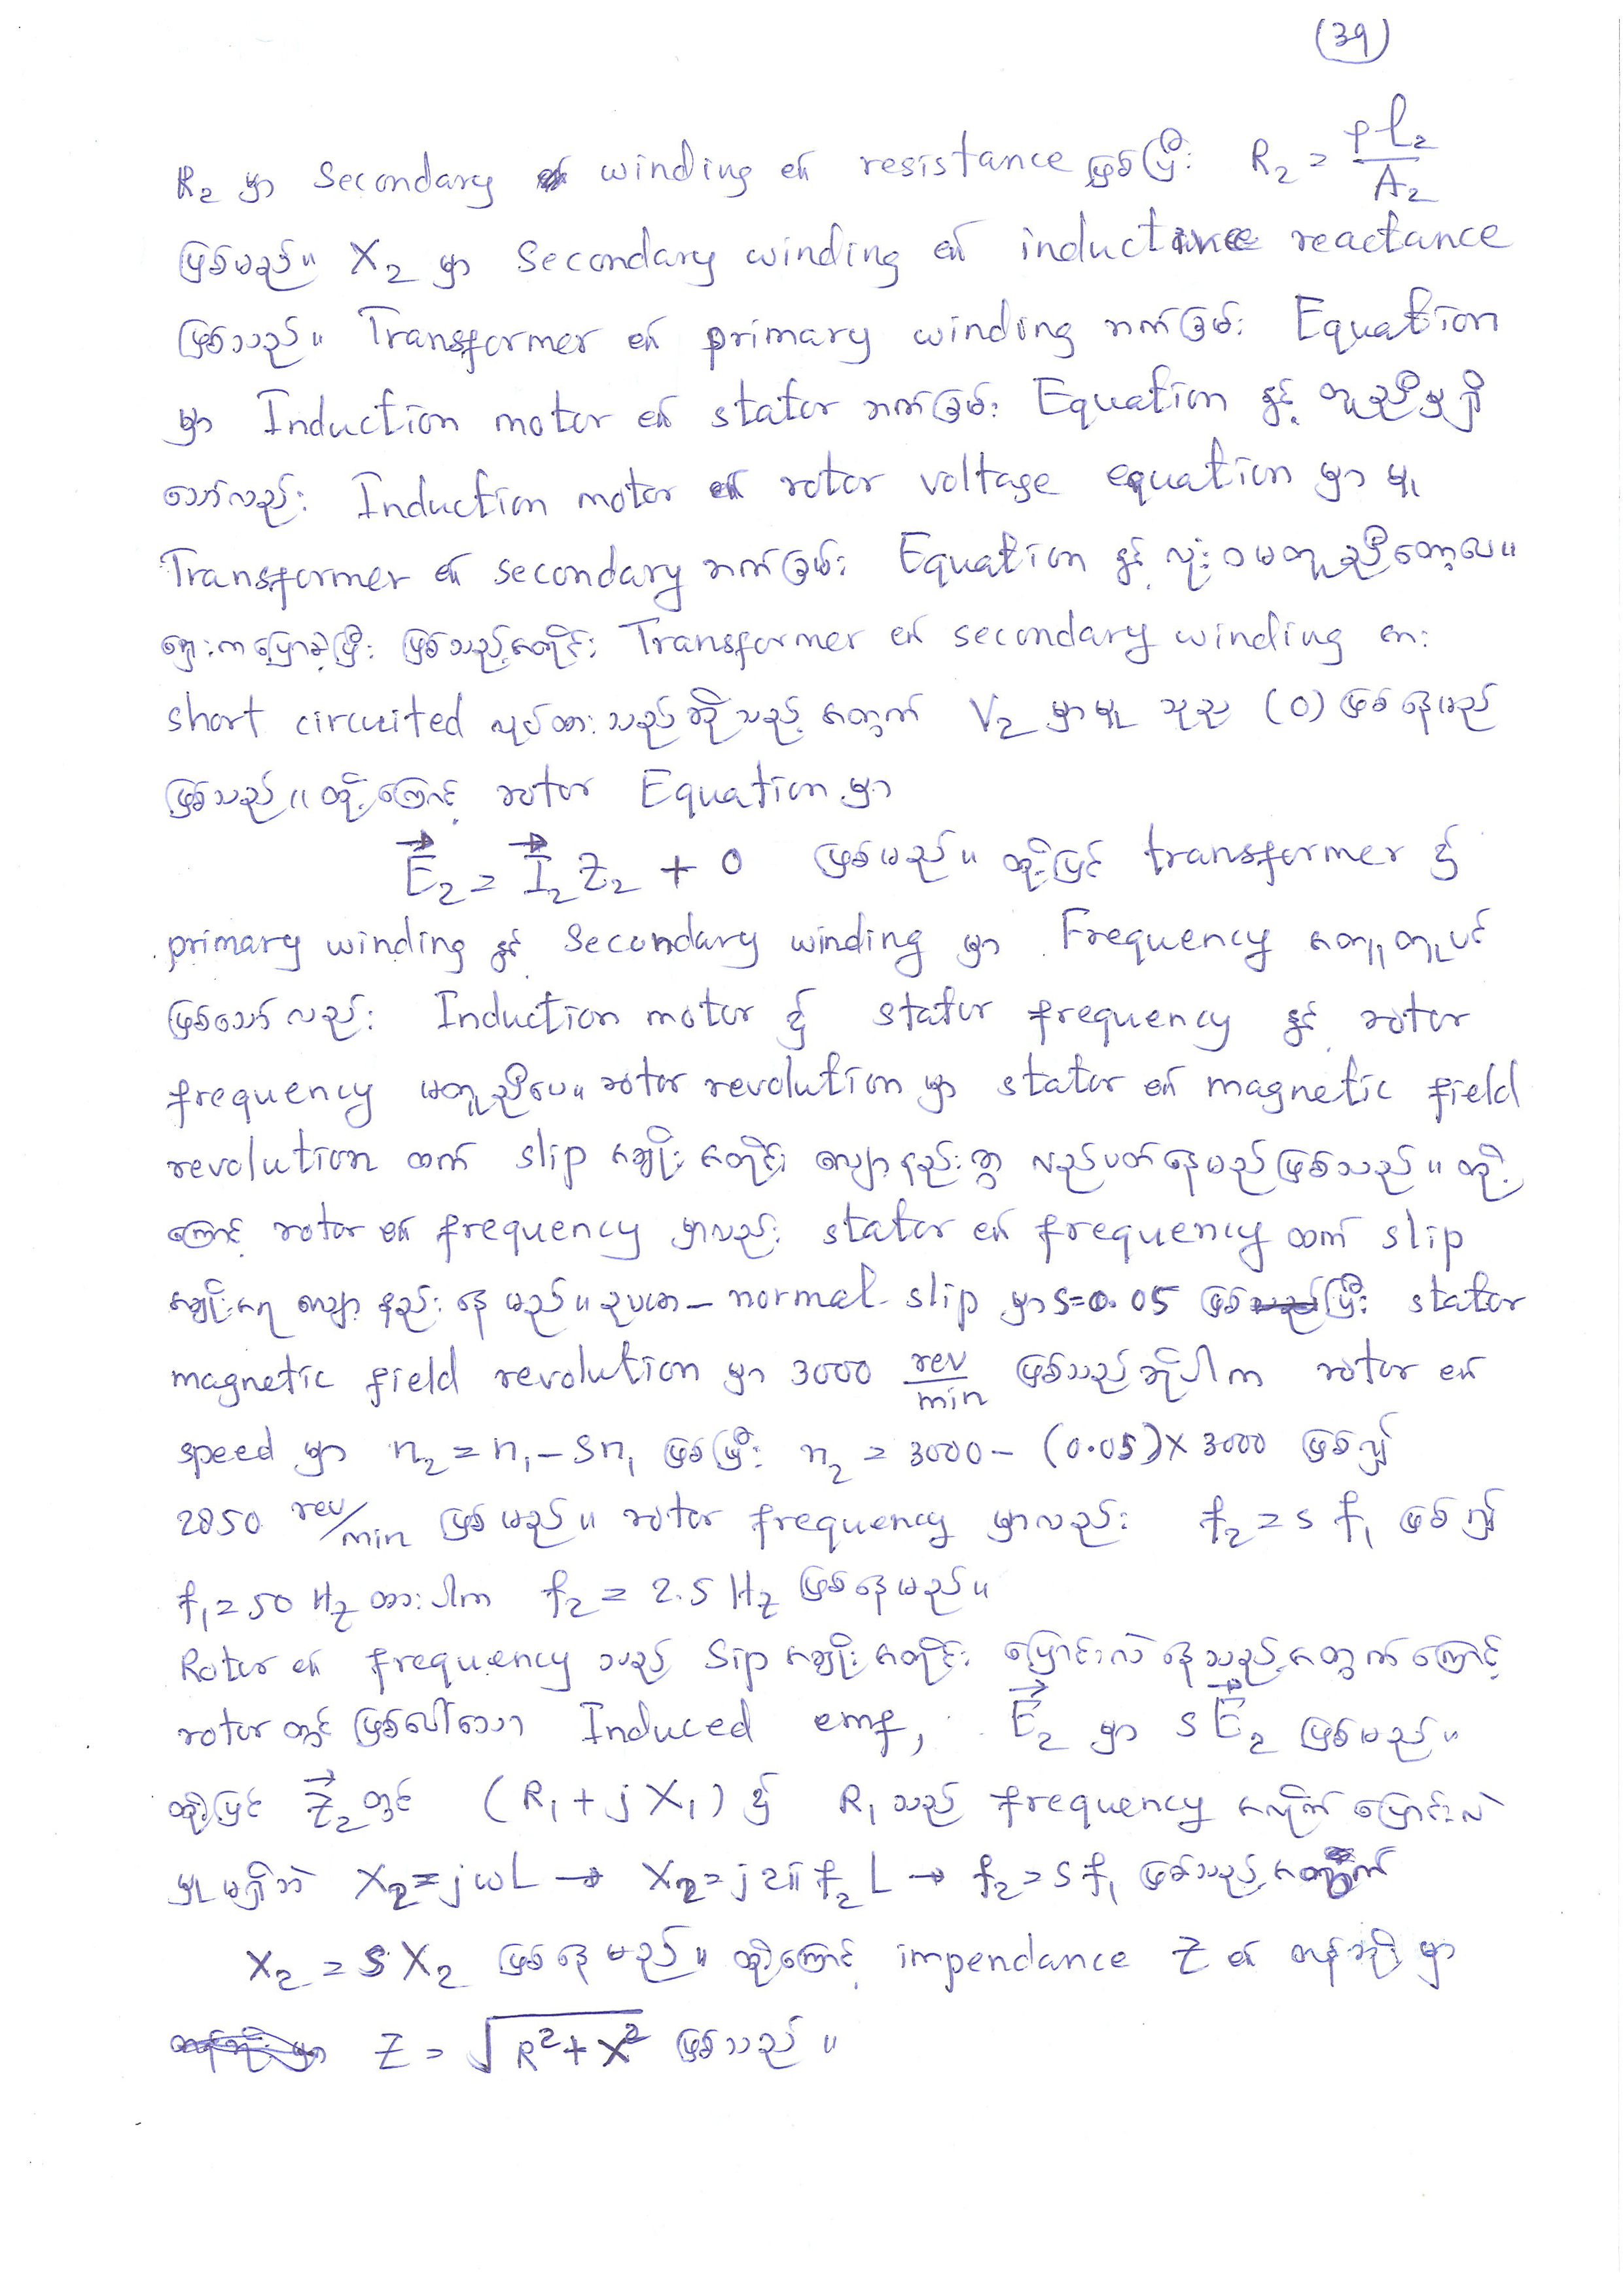 (39)
R₂ မှာ Secondary winding ၏ resistance ဖြစ်ပြီး R₂ = ρl₂/A₂
ဖြစ်မည်။ X₂ မှာ Secondary winding ၏ inductive reactance
ဖြစ်သည်။ Transformer ၏ primary winding ဘက်ခြမ်း Equation
မှာ Induction motor ၏ stator ဘက်ခြမ်း Equation နှင့် တူညီမှုရှိ
သော်လည်း Induction motor ၏ rotor voltage equation မှာမူ
Transformer ၏ secondary ဘက်ခြမ်း Equation နှင့် လုံးဝမတူညီတော့ပေ။
ရှေ့ကပြောခဲ့ပြီး ဖြစ်သည့်အတိုင်း Transformer ၏ secondary winding အား
short circuited လုပ်ထားသည်ဆိုသည့်အတွက် V₂ မှာမူ သုည (0) ဖြစ်နေမည်
ဖြစ်သည်။ ထို့ကြောင့် rotor Equation မှာ
E⃗₂ = I⃗₂ Z₂ + 0 ဖြစ်မည်။ ထို့ပြင် transformer ၌
primary winding နှင့် Secondary winding မှာ Frequency အတူတူပင်
ဖြစ်သော်လည်း Induction motor ၌ stator frequency နှင့် rotor
frequency မတူညီပေ။ rotor revolution မှာ stator ၏ magnetic field
revolution ထက် slip အချိုးအတိုင်း လျော့နည်းစွာ လည်ပတ်နေမည်ဖြစ်သည်။ ထို့
ကြောင့် rotor ၏ frequency မှာလည်း stator ၏ frequency ထက် slip
အချိုးအရ လျော့နည်းနေမည်။ ဥပမာ – normal slip မှာ s=0.05 ဖြစ်ပြီး stator
magnetic field revolution မှာ 3000 rev/min ဖြစ်သည်ဆိုပါက rotor ၏
speed မှာ n₂ = n₁ – Sn₁ ဖြစ်ပြီး n₂ = 3000 – (0.05) × 3000 ဖြစ်၍
2850 rev/min ဖြစ်မည်။ rotor frequency မှာလည်း f₂ = s f₁ ဖြစ်၍
f₁ = 50 Hz ထားပါက f₂ = 2.5 Hz ဖြစ်နေမည်။
Rotor ၏ frequency သည် Sip အချိုးအတိုင်း ပြောင်းလဲနေသည့်အတွက်ကြောင့်
rotor တွင် ဖြစ်ပေါ်သော Induced emf, E⃗₂ မှာ s E⃗₂ ဖြစ်မည်။
ထို့ပြင် Z⃗₂ တွင် (R₁ + j X₁) ၌ R₁ သည် frequency အလိုက် ပြောင်းလဲ
မှုမရှိဘဲ X₂ = jωL → X₂ = j2π f₂ L → f₂ = s f₁ ဖြစ်သည့်အတွက်
X₂ = S X₂ ဖြစ်နေမည်။ ထို့ကြောင့် impendance Z ၏ တန်ဘိုးမှာ
Z = √(R² + X²) ဖြစ်သည်။